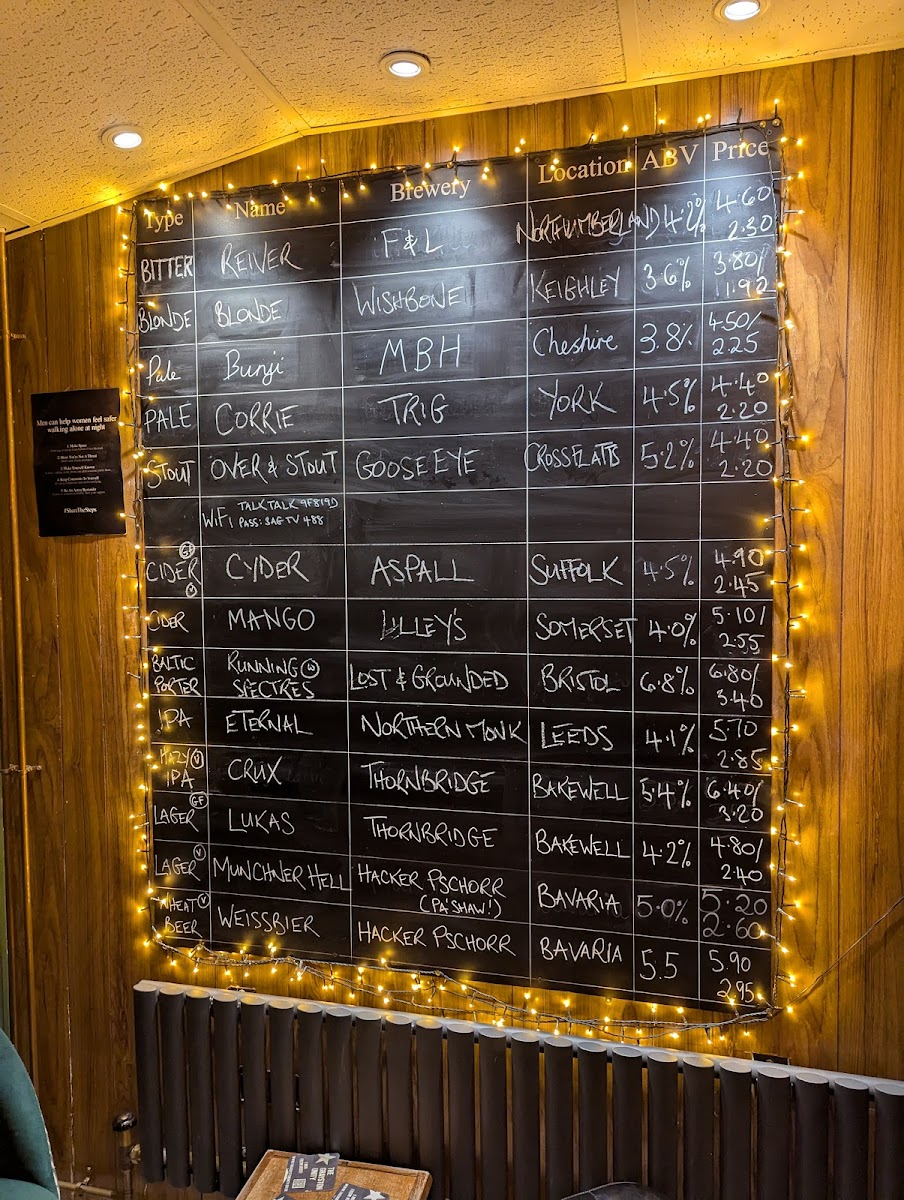 Type Name Brewery Location ABV Price
BITTER REIVER F&L NORTHUMBERLAND 4.2% 4.60
2.30
BLONDE BLONDE WISHBONE KEIGHLEY 3.6% 3.80/
1.92
Pale Bunji MBH Cheshire 3.8% 4.50/
2.25
PALE CORRIE TRIG YORK 4.5% 4.40
2.20
STOUT OVER & STOUT GOOSE EYE CROSSFLATTS 5.2% 4.40
2.20
WIFI TALKTALK 9F819D
PASS: SAGTV488
CIDER GF V CYDER ASPALL SUFFOLK 4.5% 4.90
2.45
CIDER MANGO LILLEY'S SOMERSET 4.0% 5.10/
2.55
BALTIC RUNNING V LOST & GROUNDED BRISTOL 6.8% 6.80/
PORTER SPECTRES 3.40
IPA ETERNAL NORTHERN MONK LEEDS 4.1% 5.70
2.85
HAZY V CRUX THORNBRIDGE BAKEWELL 5.4% 6.40/
IPA 3.20
LAGER GF LUKAS THORNBRIDGE BAKEWELL 4.2% 4.80/
2.40
LAGER V MUNCHNER HELL HACKER PSCHORR BAVARIA 5.0% 5.20
(PA'SHAW!) 2.60
WHEAT V WEISSBIER HACKER PSCHORR BAVARIA 5.5 5.90
BEER 2.95
Men can help women feel safer
walking alone at night
#ShareTheSteps